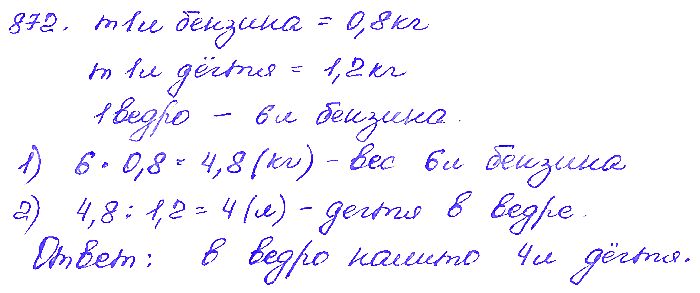 872. m 1л бензина = 0,8кг
m 1л дёгтя = 1,2кг
1 ведро – 6л бензина.
1) 6 · 0,8 = 4,8 (кг) – вес 6л бензина
2) 4,8 : 1,2 = 4 (л) – дегтя в ведре.
Ответ: в ведро налито 4л дёгтя.